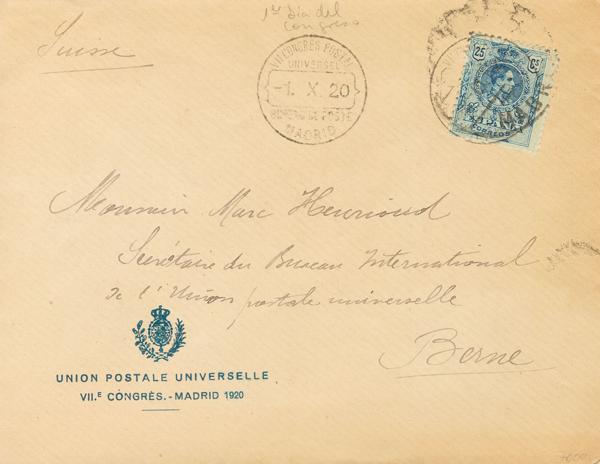 1er día del
congreso
Suisse
VII CONGRÈS POSTAL
UNIVERSEL
-1. X. 20
BUREAU DE POSTE
MADRID
25 Cs
CORREOS
MADR
Monsieur Marc Henrioud
Secrétaire du Bureau International
de l'Union postale universelle
Berne
UNION POSTALE UNIVERSELLE
VII.E CONGRÈS.-MADRID 1920